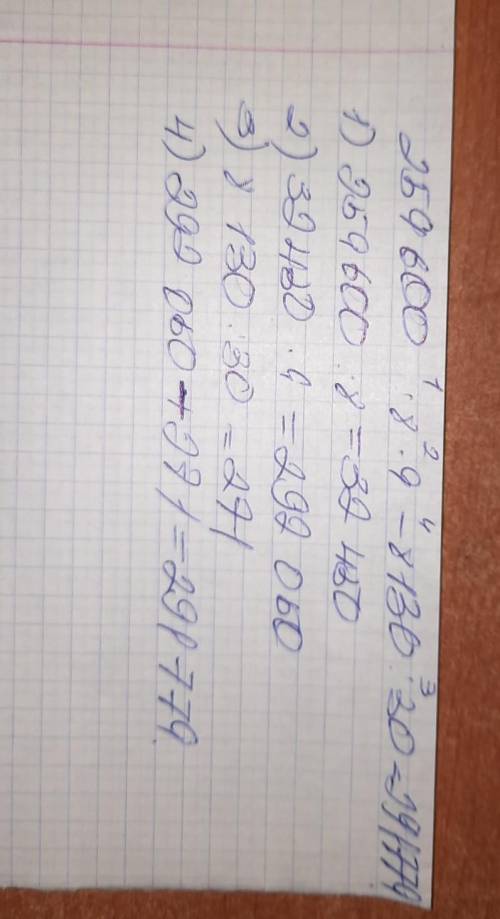 1 2 4 3
259 600 : 8 · 9 - 8130 : 30 = 291779
1) 259 600 : 8 = 32 450
2) 32 450 · 9 = 292 050
3) 8 130 : 30 = 271
4) 292 050 - 271 = 291 779